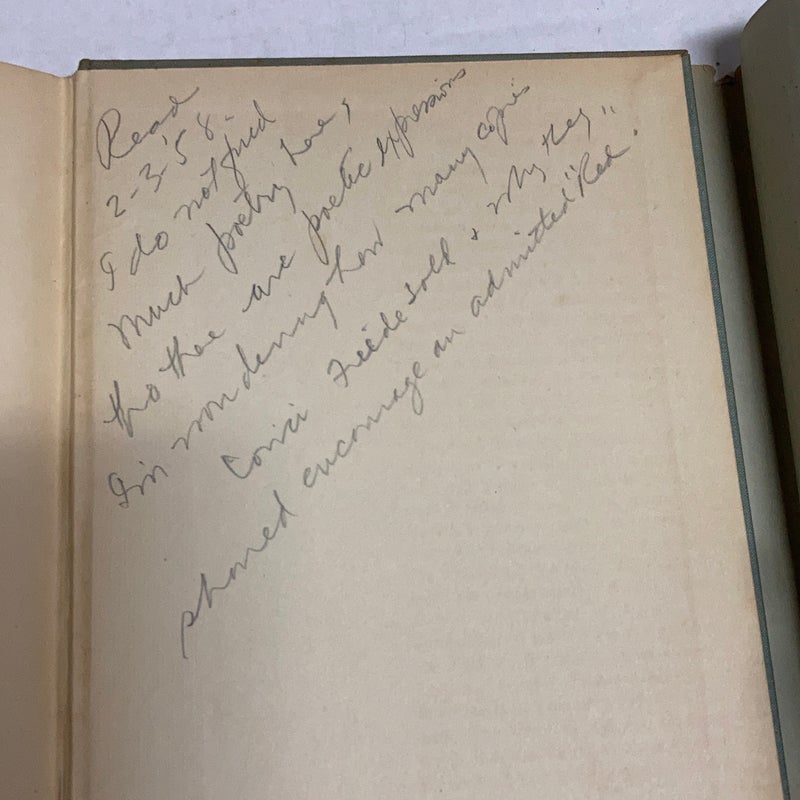 Read
2-3-'58-
I do not find
much poetry here,
tho there are poetic expressions
I'm wondering how many copies
Covici Friede sold + why they
should encourage an admitted "Red".